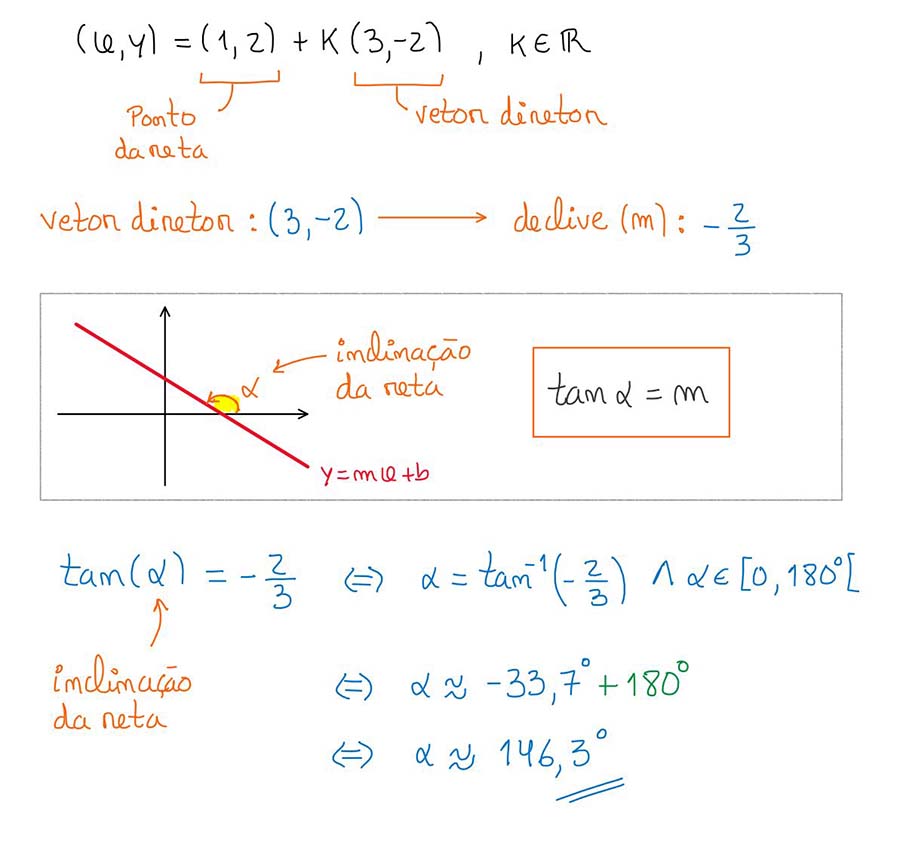 (x,y) = (1,2) + K(3,-2) , K∈ℝ
Ponto
da reta
vetor diretor
vetor diretor : (3,-2) → declive (m): -2/3
inclinação
da reta
α
tan α = m
y=mx+b
tan(α) = -2/3 ⇔ α = tan⁻¹(-2/3) ∧ α∈[0,180°[
inclinação
da reta
⇔ α ≈ -33,7° +180°
⇔ α ≈ 146,3°